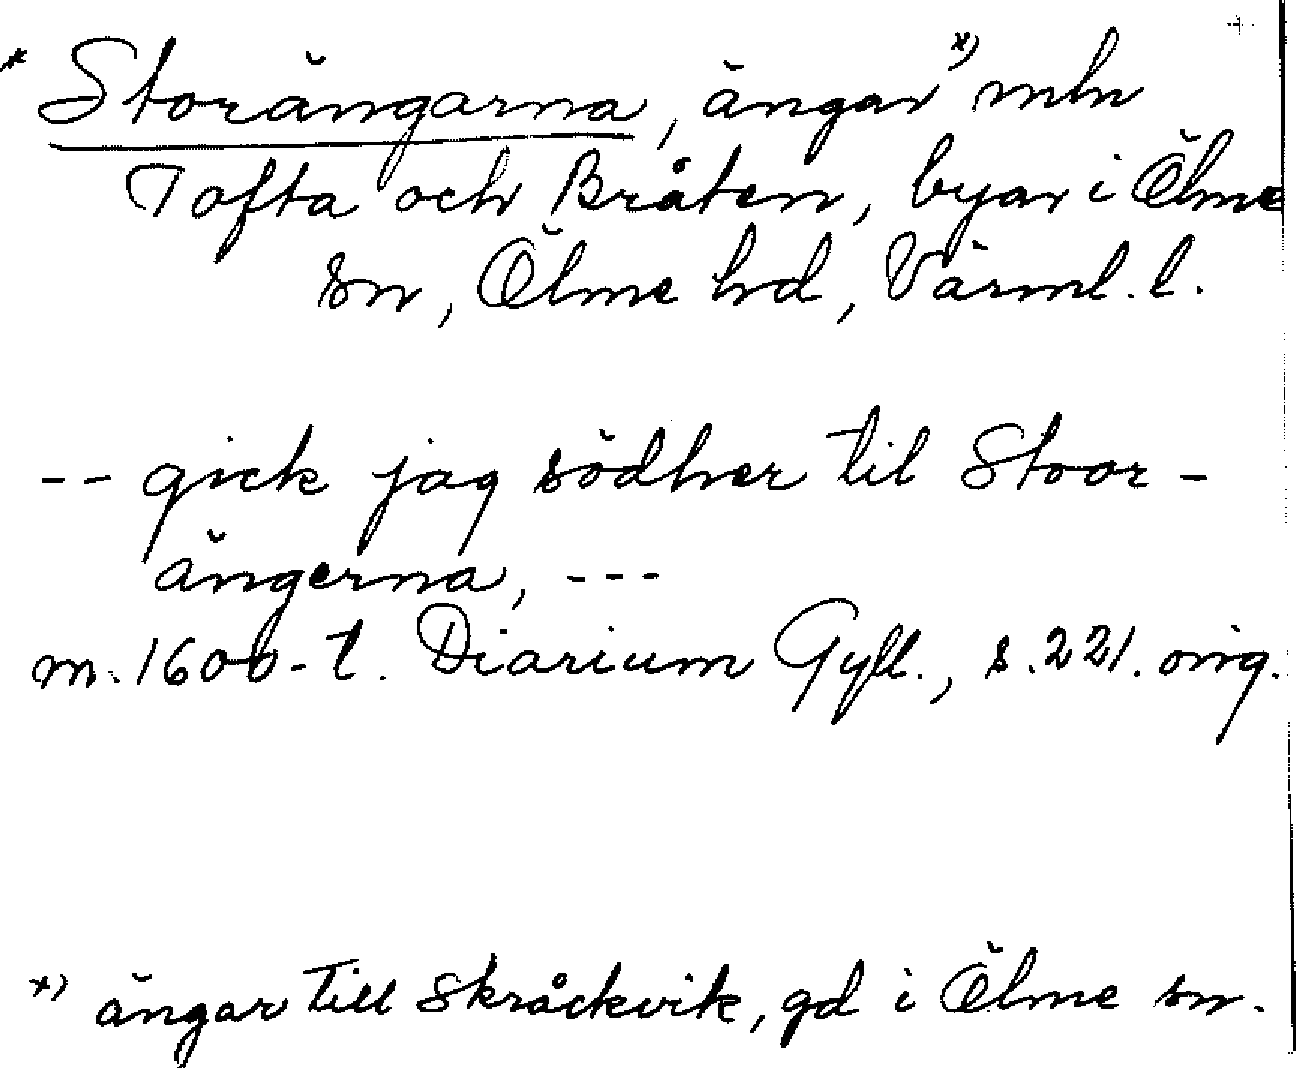 * Storängarna, ängar *) mln
Tofta och Bråten, byar i Ölme
sn, Ölme hd, Värml. l.
-- gick jag södher til Stoor-
ängerna, ---
m. 1600-t. Diarium Gyll., s. 221. orig.
*) ängar till Skråckvik, gd i Ölme sn.